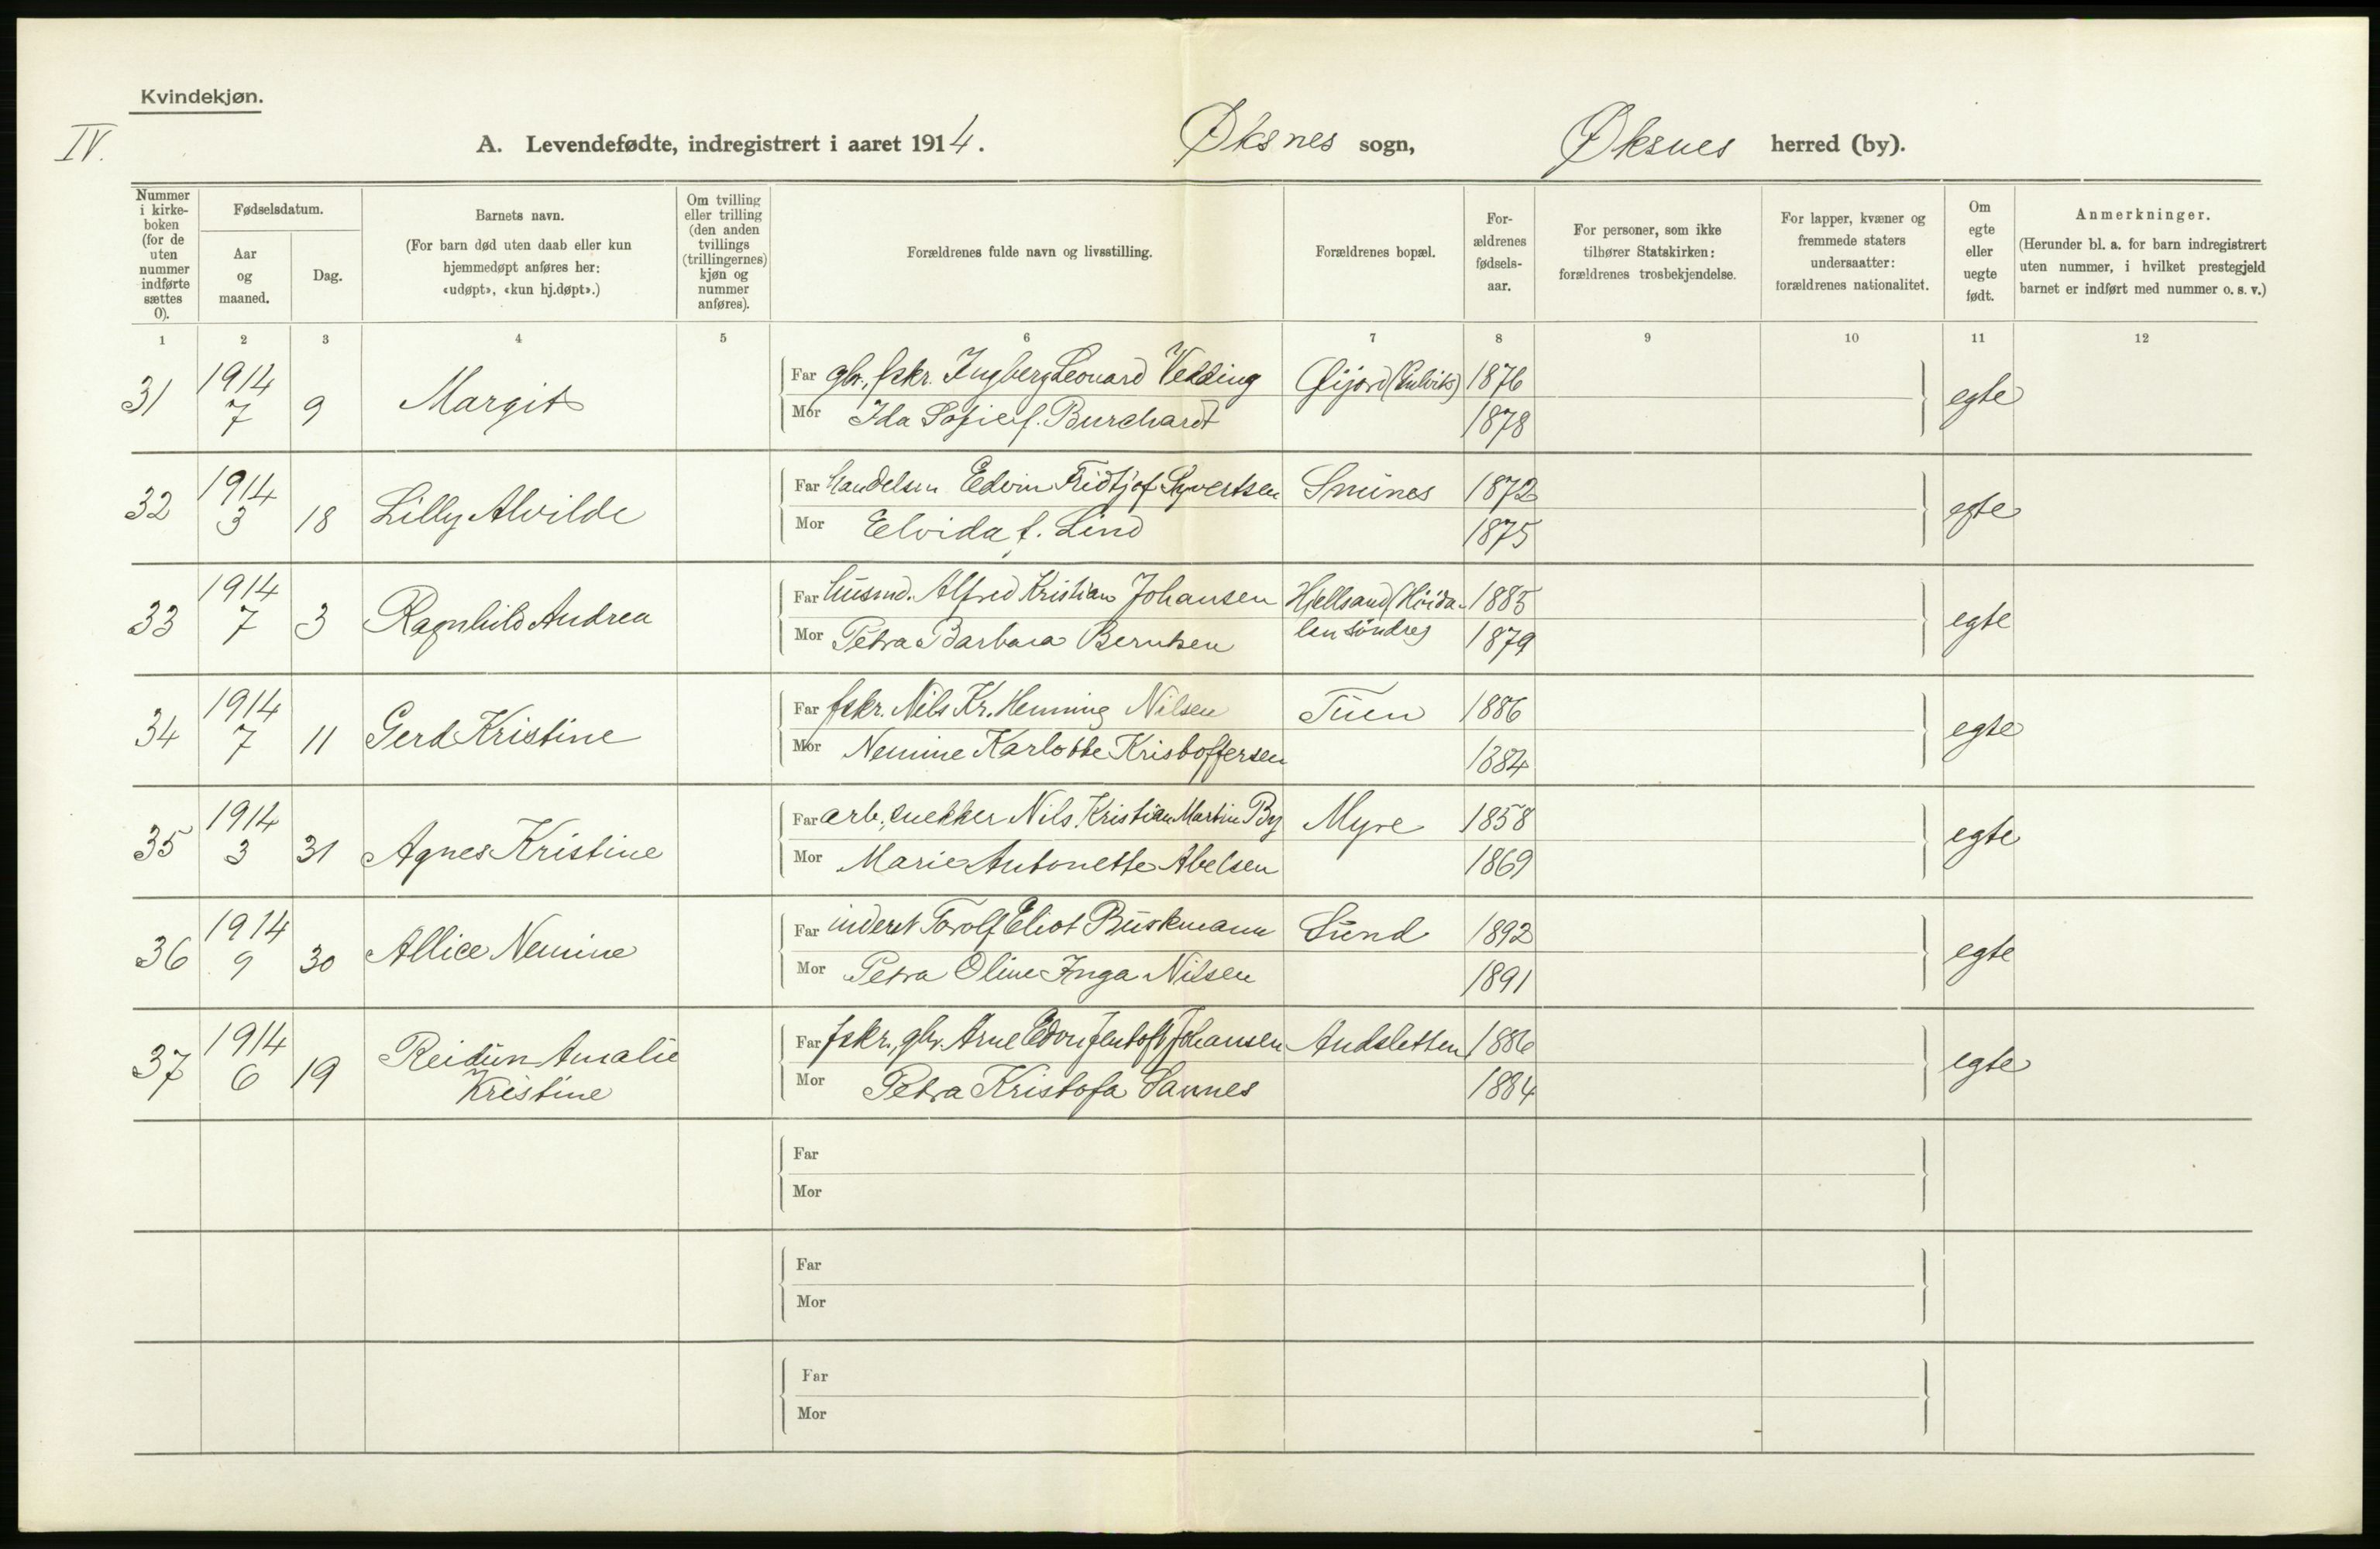 Kvindekjøn.
IV.
A. Levendefødte, indregistrert i aaret 1914. Øksnes sogn, Øksnes herred (by).
Nummer i kirke-boken (for de uten nummer indførte sættes 0).
Fødselsdatum.
Aar og maaned.
Dag.
Barnets navn.
(For barn død uten daab eller kun hjemmedøpt anføres her: «udøpt», «kun hj.døpt».)
Om tvilling eller trilling (den anden tvillings (trillingernes) kjøn og nummer anføres).
Forældrenes fulde navn og livsstilling.
Forældrenes bopæl.
For-ældrenes fødsels-aar.
For personer, som ikke tilhører Statskirken: forældrenes trosbekjendelse.
For lapper, kvæner og fremmede staters undersaatter: forældrenes nationalitet.
Om egte eller uegte født.
Anmerkninger.
(Herunder bl. a. for barn indregistrert uten nummer, i hvilket prestegjeld barnet er indført med nummer o. s. v.)
1 2 3 4 5 6 7 8 9 10 11 12
31 1914 7 9 Margit Far gbr., fskr. Ingberg Leonard Vedding 1876 egte
Mor Ida Sofie f. Burchardt 1878
32 1914 3 18 Lilly Alvilde Far handelsm Edvin Fridtjof Syvertsen Smines 1872 egte
Mor Elvida f. Lind 1875
33 1914 7 3 Ragnhild Andrea Far husmd. Alfred Kristian Johansen Hjellsand (Høida- 1885 egte
Mor Petra Barbara Berntsen len søndre) 1879
34 1914 7 11 Gerd Kristine Far fskr. Nils Kr. Henning Nilsen Tuen 1886 egte
Mor Nemine Karlotte Kristoffersen 1884
35 1914 3 31 Agnes Kristine Far arb., Nils Kristian Martin By Myre 1858 egte
Mor Marie Antonette Abelsen 1869
36 1914 9 30 Allice Nemine Far inderst Torolf Eliot Buskmann Sund 1892 egte
Mor Petra Oline Inga Nilsen 1891
37 1914 6 19 Reidun Amalie Far fskr., gbr. Arne Edon Jentoft Johansen Andsletten 1886 egte
Kristine Mor Petra Kristofa Sannes 1884
Far
Mor
Far
Mor
Far
Mor